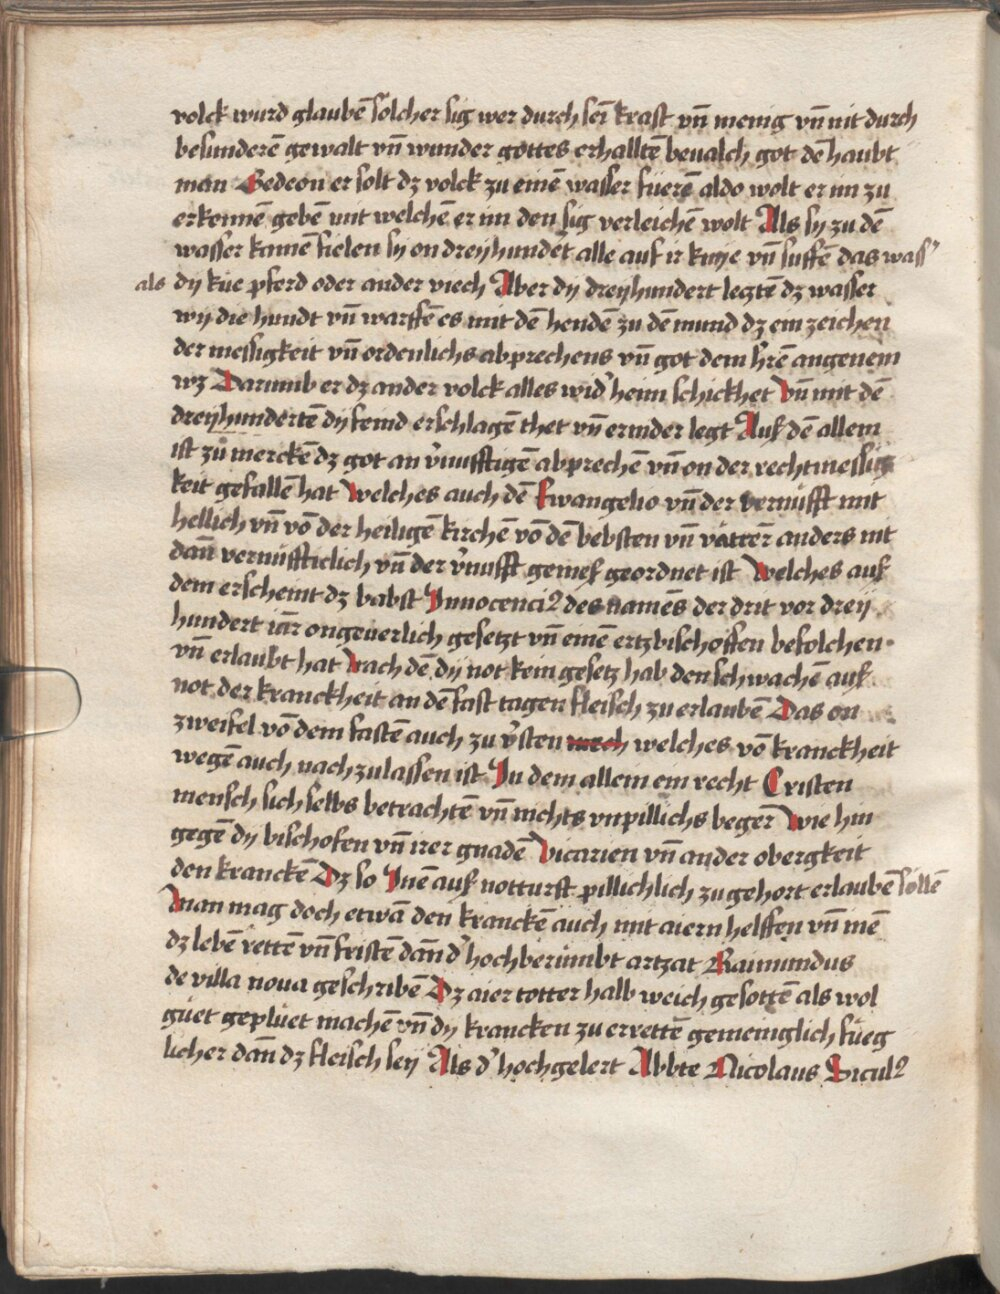 volck wurd glaubē sölcher sig wer durch sei krafft vn̄ menig vn̄ nit durch
besunderē gewalt vn̄ wunder gottes erhalltē beualch got dē haubt
man Gedeon er solt dz volck zu einē wasser füerē aldo wolt er im zu
erkennē gebē mit welchē er im den sig verleichē wolt Als sy zu dē
wasser kamē fielen sy on dreyhundet alle auf ir knye vn̄ suffē das wass᾽
als dy küe pferd oder ander viech Aber dy dreyhundert leqztē dz wasser
wy die hundt vn̄ warffē es mit dē hendē zu dē mund dz ein zeichen
der messigkeit vn̄ ordenlichs abprechens vn̄ got dem h̄rē angenem
wz Darumb er dz ander volck alles wid᾽ heim schickhet Vn̄ mit dē
dreyhundertē dy feind erschlagē thet vn̄ ernider legt Auß dē allem
ist zu̇ merckē dz got an v̄nufftigē abprechē vn̄ on der rechtmessig
keit gefallē hat Welches auch dē Ewangelio vn̄ der vernüfft mit
hellich vn̄ vō der heiligē kirchē vō dē bebsten vn̄ vättēr anders nit
dan̄ vernüffticlich vn̄ der v̄nufft gemeß geordnet ist Welches auß
dem erscheint dz babst Innocenciꝰ des namēs der drit vor drey
hundert iār ongeuerlich gesetzt vn̄ einē ertzbischoffen befolchen
vn̄ erlaubt hat Nach dē dy not kein gesetz hab den schwachē auß
not der kranckheit an dē fast tagen fleisch zu erlaubē Das on
zweifel vō dem fastē auch zu v̄sten welches vō kranckheit
wegē auch nachzulassen ist In dem allem ein recht Cristen
mensch sich selbs betrachtē vn̄ nichts vnpillichs beger̄ Wie hin
gegē dy bischofen vn̄ irer gnadē Vicarien vn̄ ander obergkeit
den kranckē Dz so Inē auß notturft pillichlich zu gehort erlaubē söllē
Man mag doch etwā den kranckē auch mit aiern helffen vn̄ inē
dz lebē rettē vn̄ fristē dan̄ d᾽ hochberümbt artzat Raimundus
de villa noua geschribē Dz aier totter halb weich gesottē als wol
güet geplüet machē vn̄ dy krancken zu errettē gemeniglich füeg
licher dan̄ dz fleisch sey Als d᾽ hochgelert Abbte Nicolaus Siculꝰ